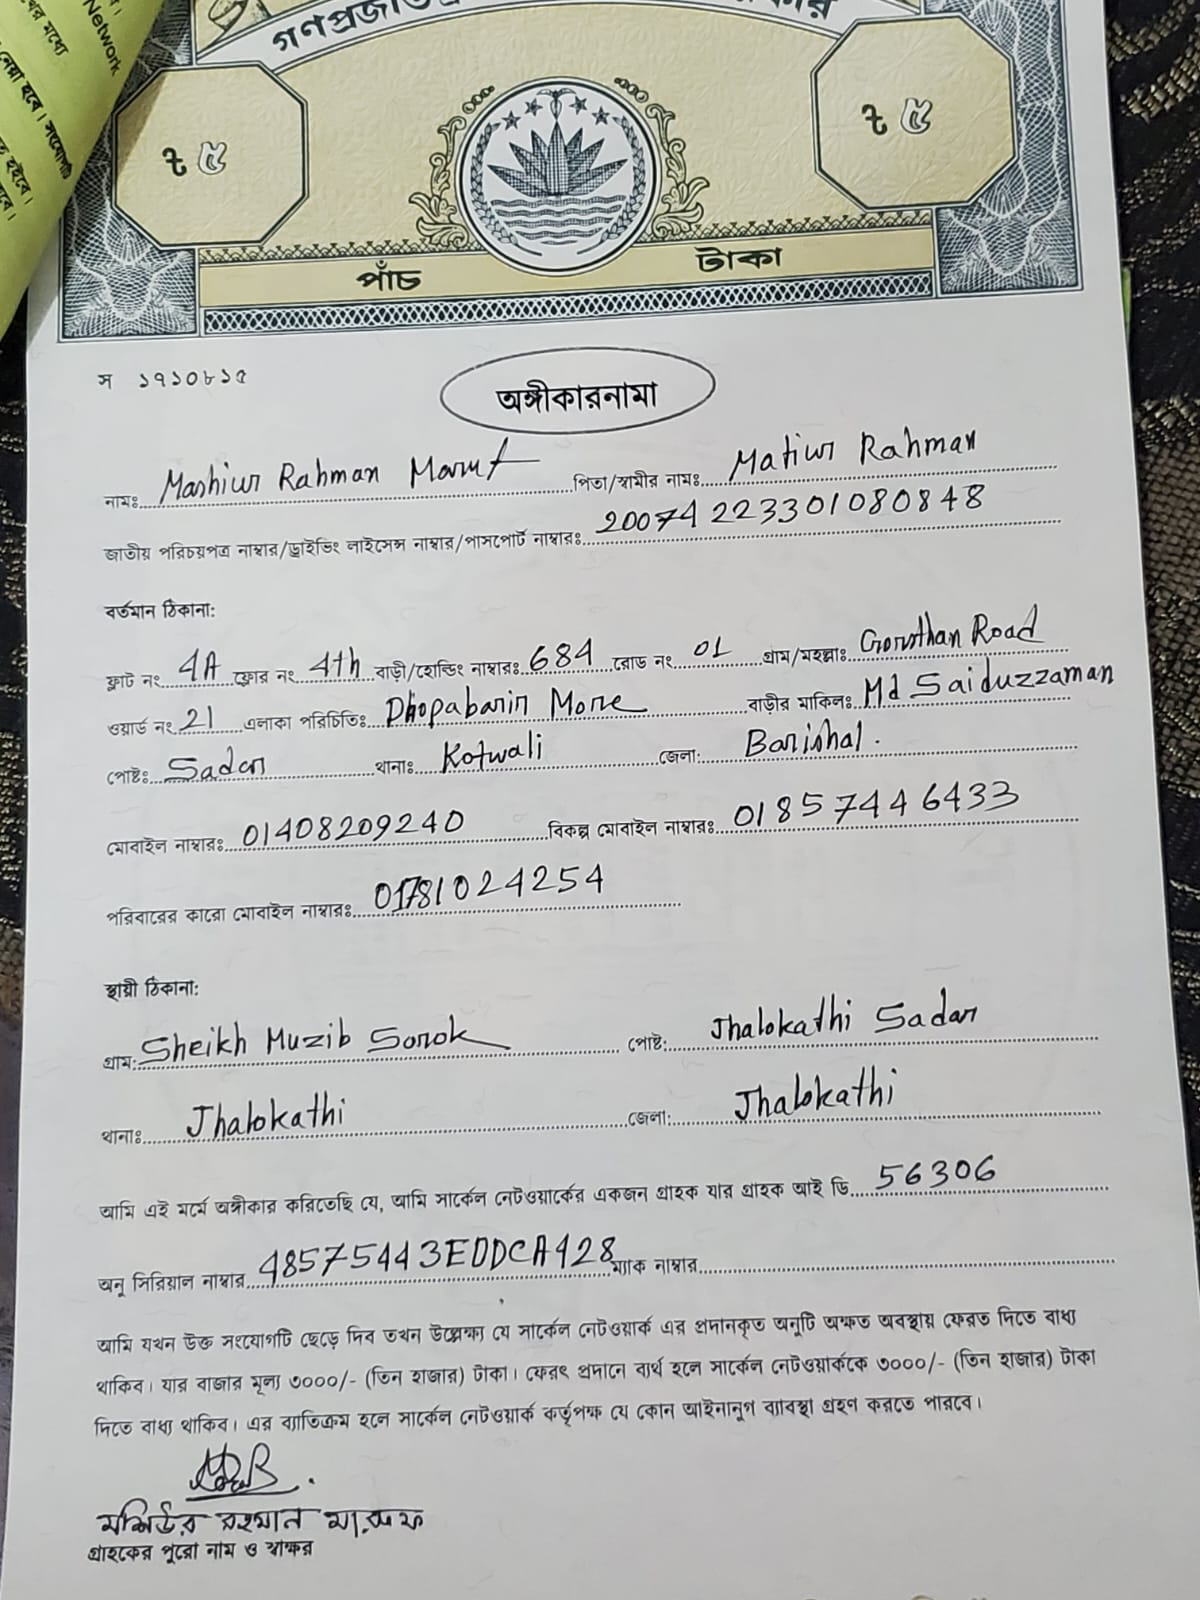 Network
খের মধ্যে
নেয়া হবে। সংযোগটি
ত হইবে।
৳ ৫
৳ ৫
পাঁচ টাকা
স ১৭১০৮১৫
অঙ্গীকারনামা
নামঃ Mashiur Rahman Maruf পিতা/স্বামীর নামঃ Matiur Rahman
জাতীয় পরিচয়পত্র নাম্বার/ড্রাইভিং লাইসেন্স নাম্বার/পাসপোর্ট নাম্বারঃ 20074223301080848
বর্তমান ঠিকানা:
ফ্লাট নং 4A ফ্লোর নং 4th বাড়ী/হোল্ডিং নাম্বারঃ 684 রোড নং 01 গ্রাম/মহল্লাঃ Gorosthan Road
ওয়ার্ড নং 21 এলাকা পরিচিতিঃ Dhopabarir More বাড়ীর মালিকঃ Md Saiduzzaman
পোষ্টঃ Sadar থানাঃ Kotwali জেলা: Barishal.
মোবাইল নাম্বারঃ 01408209240 বিকল্প মোবাইল নাম্বারঃ 01857446433
পরিবারের কারো মোবাইল নাম্বারঃ 01781024254
স্থায়ী ঠিকানা:
গ্রাম: Sheikh Muzib Sorok পোষ্ট: Jhalokathi Sadar
থানাঃ Jhalokathi জেলা: Jhalokathi
আমি এই মর্মে অঙ্গীকার করিতেছি যে, আমি সার্কেল নেটওয়ার্কের একজন গ্রাহক যার গ্রাহক আই ডি 56306
অনু সিরিয়াল নাম্বার 48575443EDDCA428 ম্যাক নাম্বার
আমি যখন উক্ত সংযোগটি ছেড়ে দিব তখন উল্লেক্ষ্য যে সার্কেল নেটওয়ার্ক এর প্রদানকৃত অনুটি অক্ষত অবস্থায় ফেরত দিতে বাধ্য
থাকিব। যার বাজার মূল্য ৩০০০/- (তিন হাজার) টাকা। ফেরৎ প্রদানে ব্যর্থ হলে সার্কেল নেটওয়ার্ককে ৩০০০/- (তিন হাজার) টাকা
দিতে বাধ্য থাকিব। এর ব্যাতিক্রম হলে সার্কেল নেটওয়ার্ক কর্তৃপক্ষ যে কোন আইনানুগ ব্যাবস্থা গ্রহণ করতে পারবে।
মশিউর রহমান মারুফ
গ্রাহকের পুরো নাম ও স্বাক্ষর